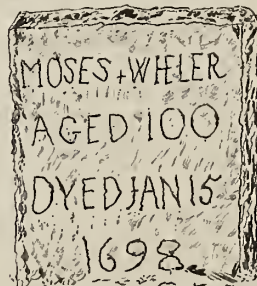 MOSES + WHLER
AGED 100
DYED JAN 15
1698